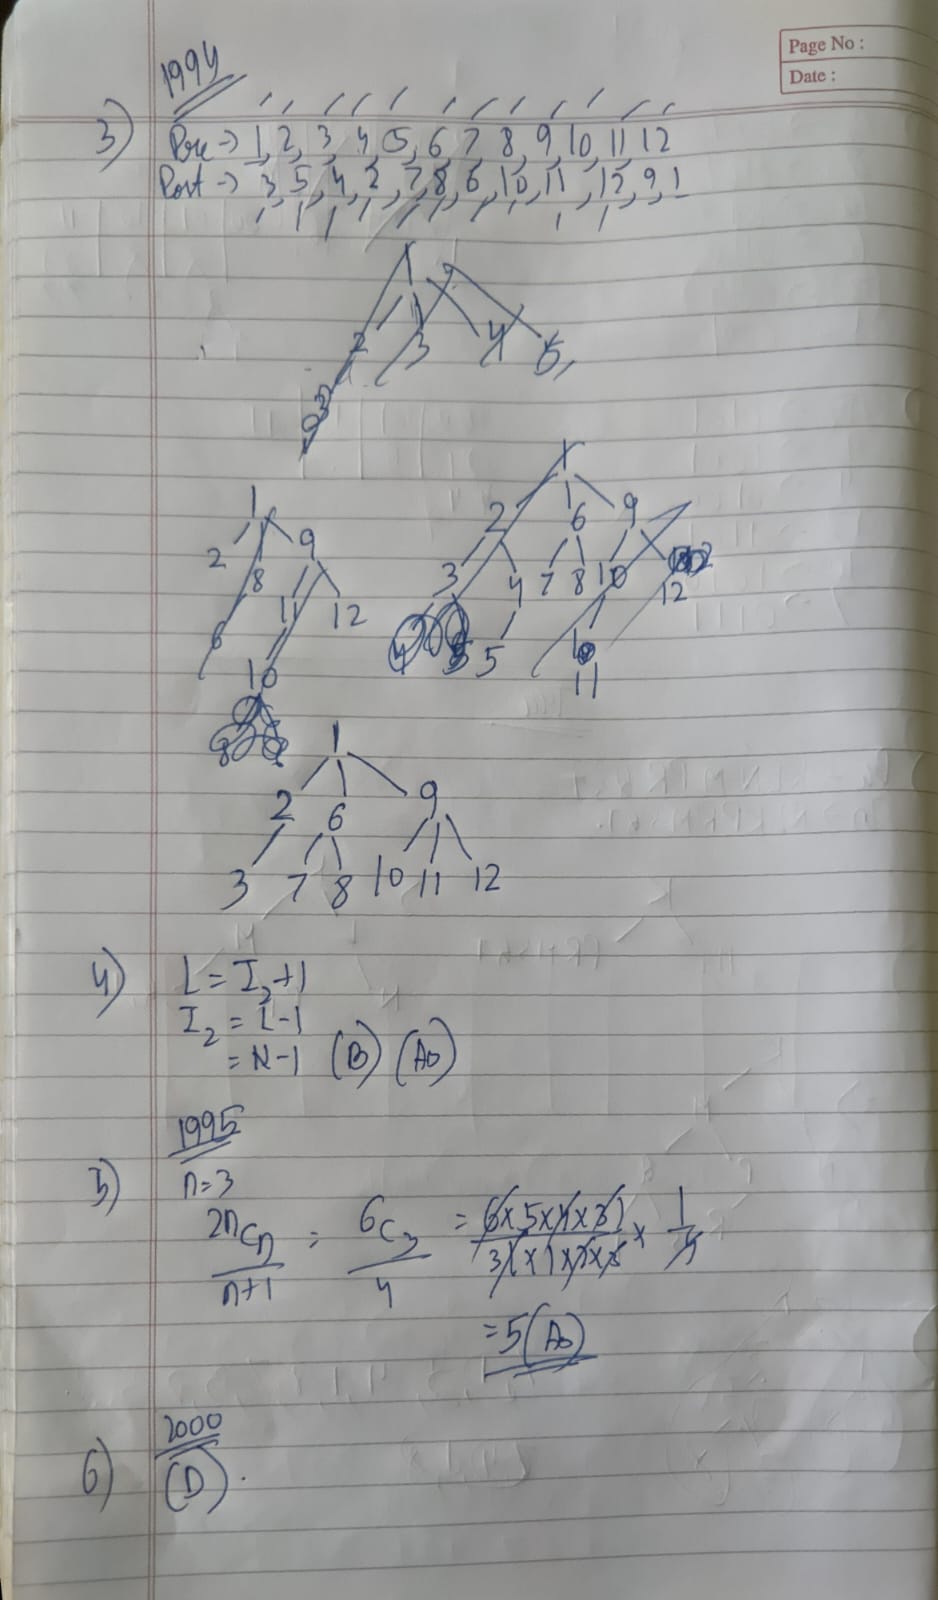 Page No :
Date :
1994
3)
Pre → 1, 2, 3, 4, 5, 6, 7, 8, 9, 10, 11, 12
Post → 3, 5, 4, 2, 7, 8, 6, 10, 11, 12, 9, 1
1
2 3 4 5
1
2 6 9
3 4 7 8 10 12
5
11
1
2 9
8 11 12
6
10
1
2 6 9
3 7 8 10 11 12
4) L = I₂ + 1
I₂ = L - 1
= N - 1 (B) (Ao)
1995
5) n = 3
2nCn / n+1 = 6C3 / 4 = 6×5×4×3! / 3!×1×2×3 × 1/4
= 5 (Ao)
2000
6) (D).